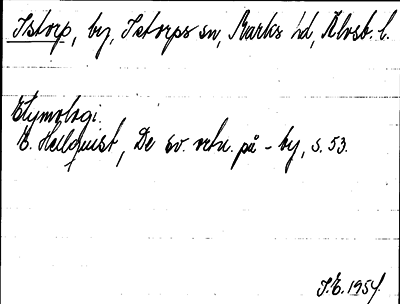 Istorp, by, Istorps sn, Marks hd, Älvsb. l.
Etymologi.
E. Hellquist, De sv. ortn. på -by, s. 53.
I.E. 1954.